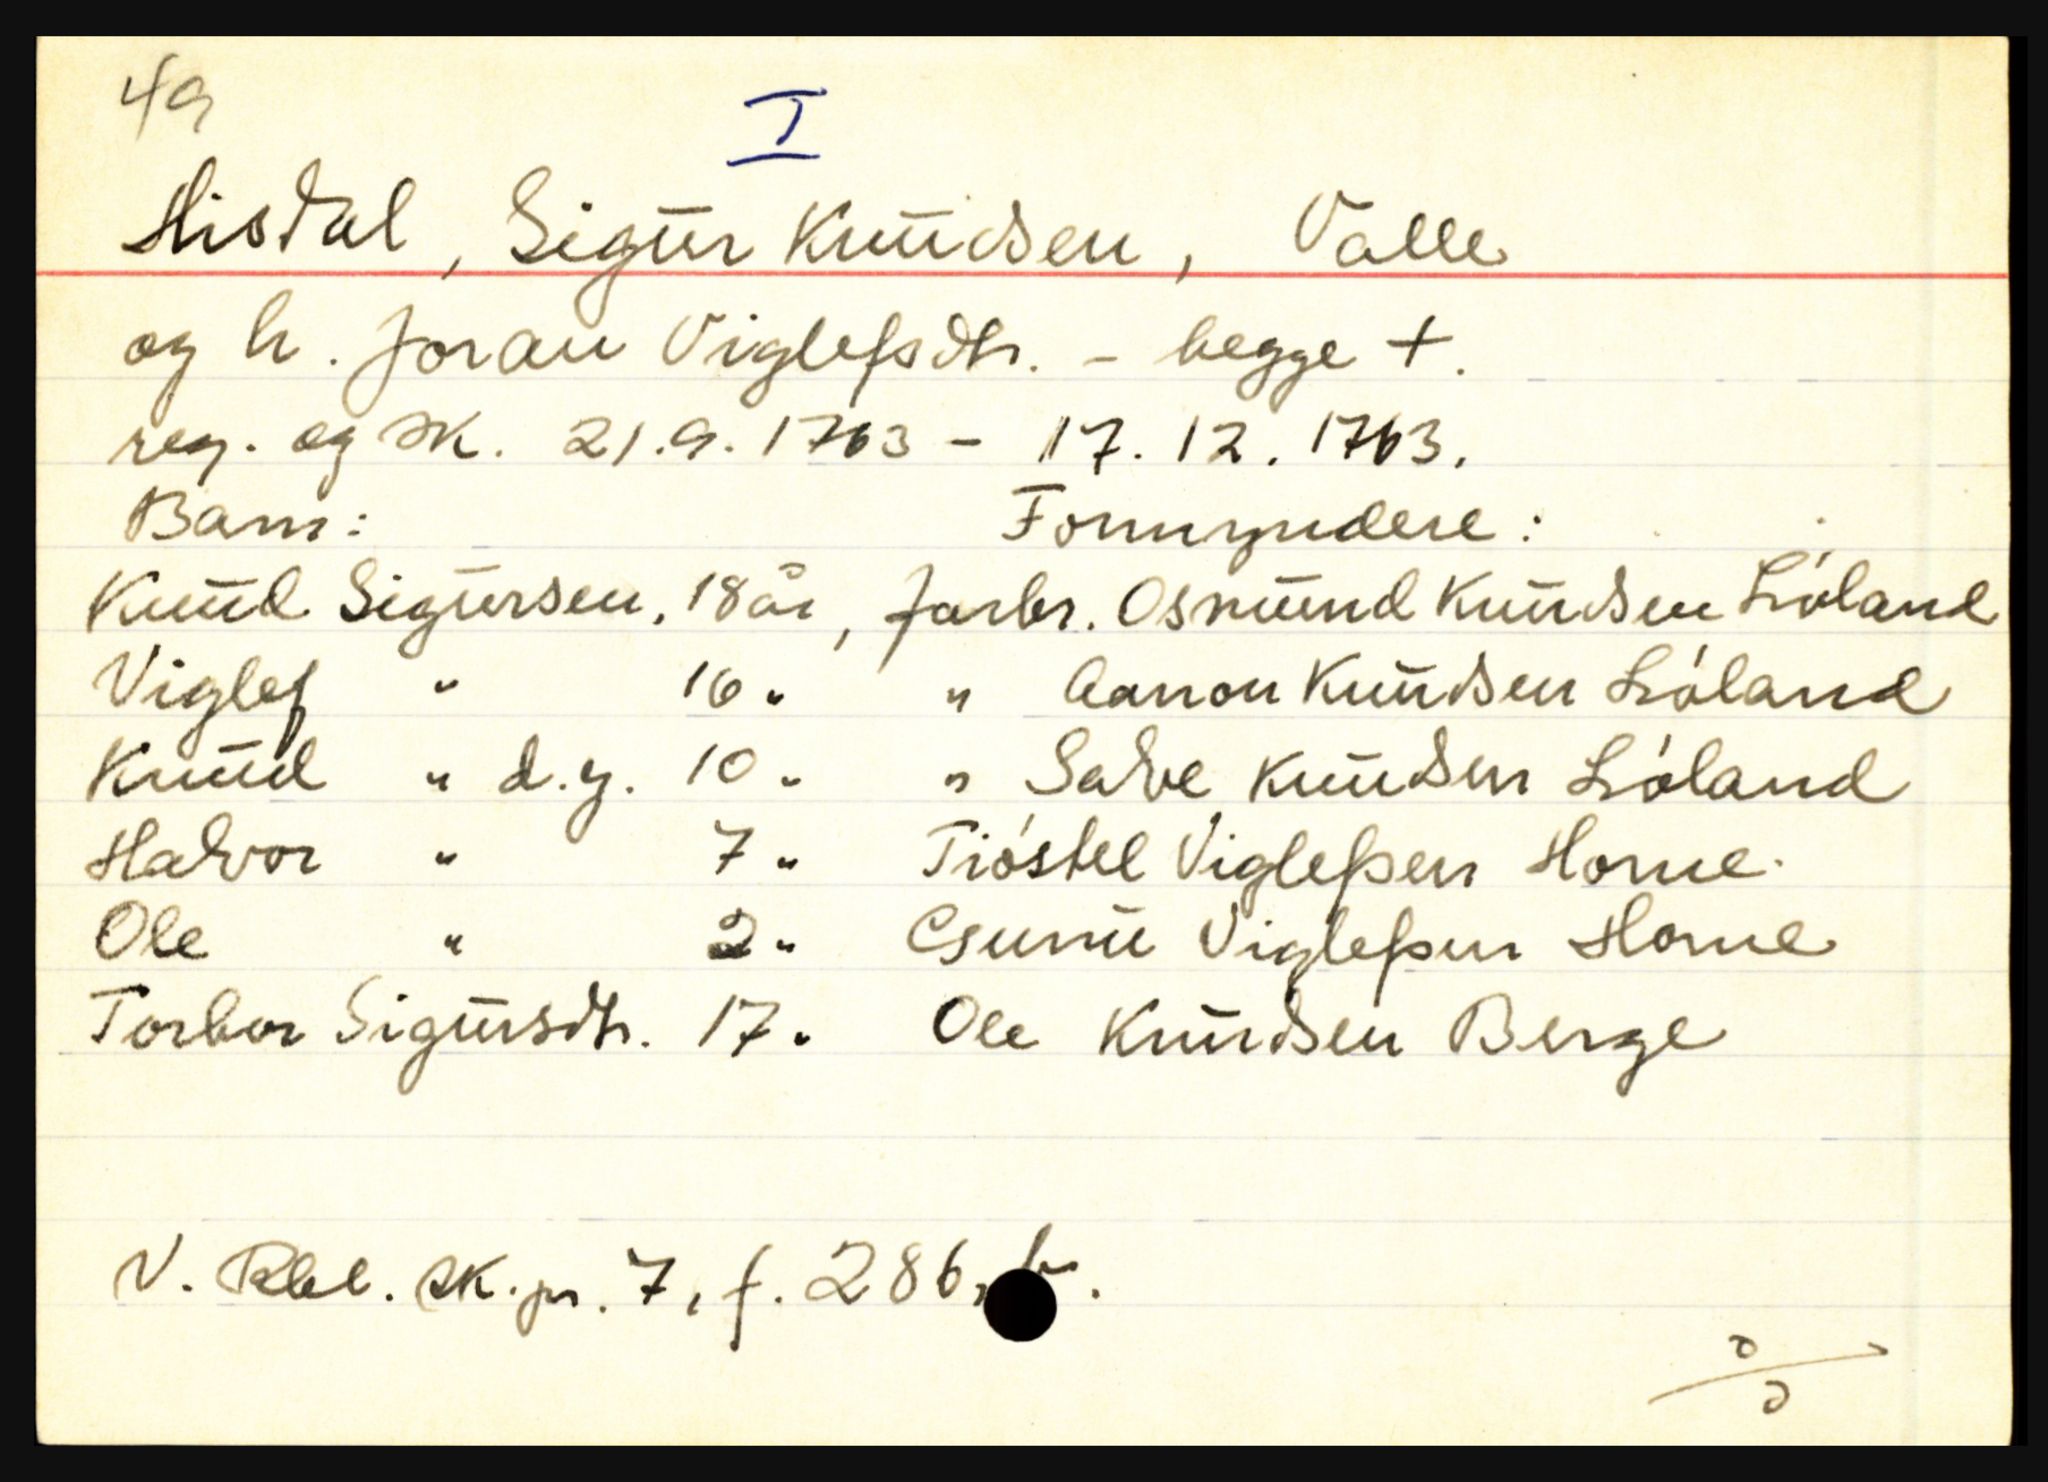 49
I
Hisdal, Sigur Knudsen, Valle
og h. Joran Viglefsdtr. - begge +.
reg. og sk. 21.9.1763 - 17.12.1763.
Barn: Formyndere:
Knud Sigursen, 18 år, farbr. Osmund Knudsen Lióland
Viglef " 16 " " Aanon Knudsen Lióland
Knud " d.y. 10 " " Salve Knudsen Lióland
Halvor " 7 " Tióstel Viglefsen Horne.
Ole " 2 " Gunnu Viglefsen Horne
Torbor Sigursdtr. 17 " Ole Knudsen Berge
V. Rbl. sk.pr. 7, f. 286, b.
0/0